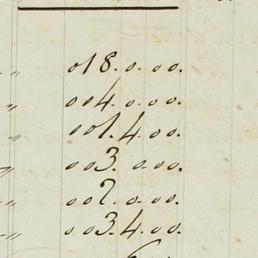 018.0.00.
004.0.00.
001.4.00.
003.0.00.
002.0.00.
003.4.00.